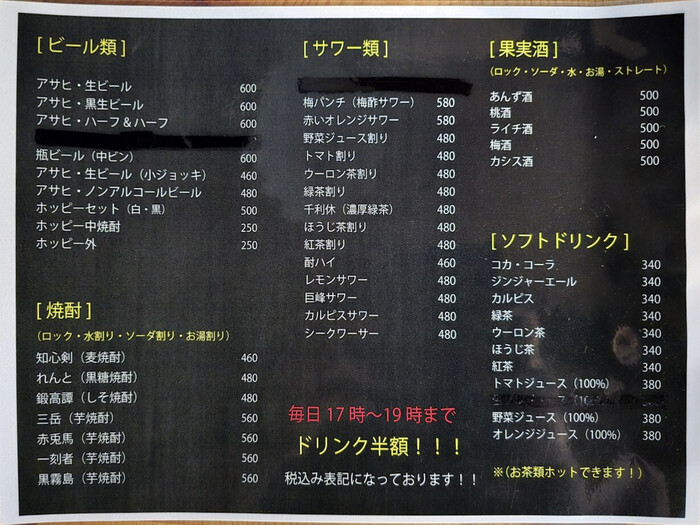 [ ビール類 ]
アサヒ・生ビール 600
アサヒ・黒生ビール 600
アサヒ・ハーフ＆ハーフ 600
瓶ビール（中ビン） 600
アサヒ・生ビール（小ジョッキ） 460
アサヒ・ノンアルコールビール 480
ホッピーセット（白・黒） 500
ホッピー中焼酎 250
ホッピー外 250
[ 焼酎 ]
（ロック・水割り・ソーダ割り・お湯割り）
知心剣（麦焼酎） 460
れんと（黒糖焼酎） 480
鍛高譚（しそ焼酎） 480
三岳（芋焼酎） 560
赤兎馬（芋焼酎） 560
一刻者（芋焼酎） 560
黒霧島（芋焼酎） 560
[ サワー類 ]
梅パンチ（梅酢サワー） 580
赤いオレンジサワー 580
野菜ジュース割り 480
トマト割り 480
ウーロン茶割り 480
緑茶割り 480
千利休（濃厚緑茶） 480
ほうじ茶割り 480
紅茶割り 480
酎ハイ 460
レモンサワー 480
巨峰サワー 480
カルピスサワー 480
シークワーサー 480
毎日 17 時～19 時まで
ドリンク半額！！！
税込み表記になっております！！
[ 果実酒 ]
（ロック・ソーダ・水・お湯・ストレート）
あんず酒 500
桃酒 500
ライチ酒 500
梅酒 500
カシス酒 500
[ ソフトドリンク ]
コカ・コーラ 340
ジンジャーエール 340
カルピス 340
緑茶 340
ウーロン茶 340
ほうじ茶 340
紅茶 340
トマトジュース（100%） 380
野菜ジュース（100%） 380
オレンジジュース（100%） 380
※（お茶類ホットできます！）